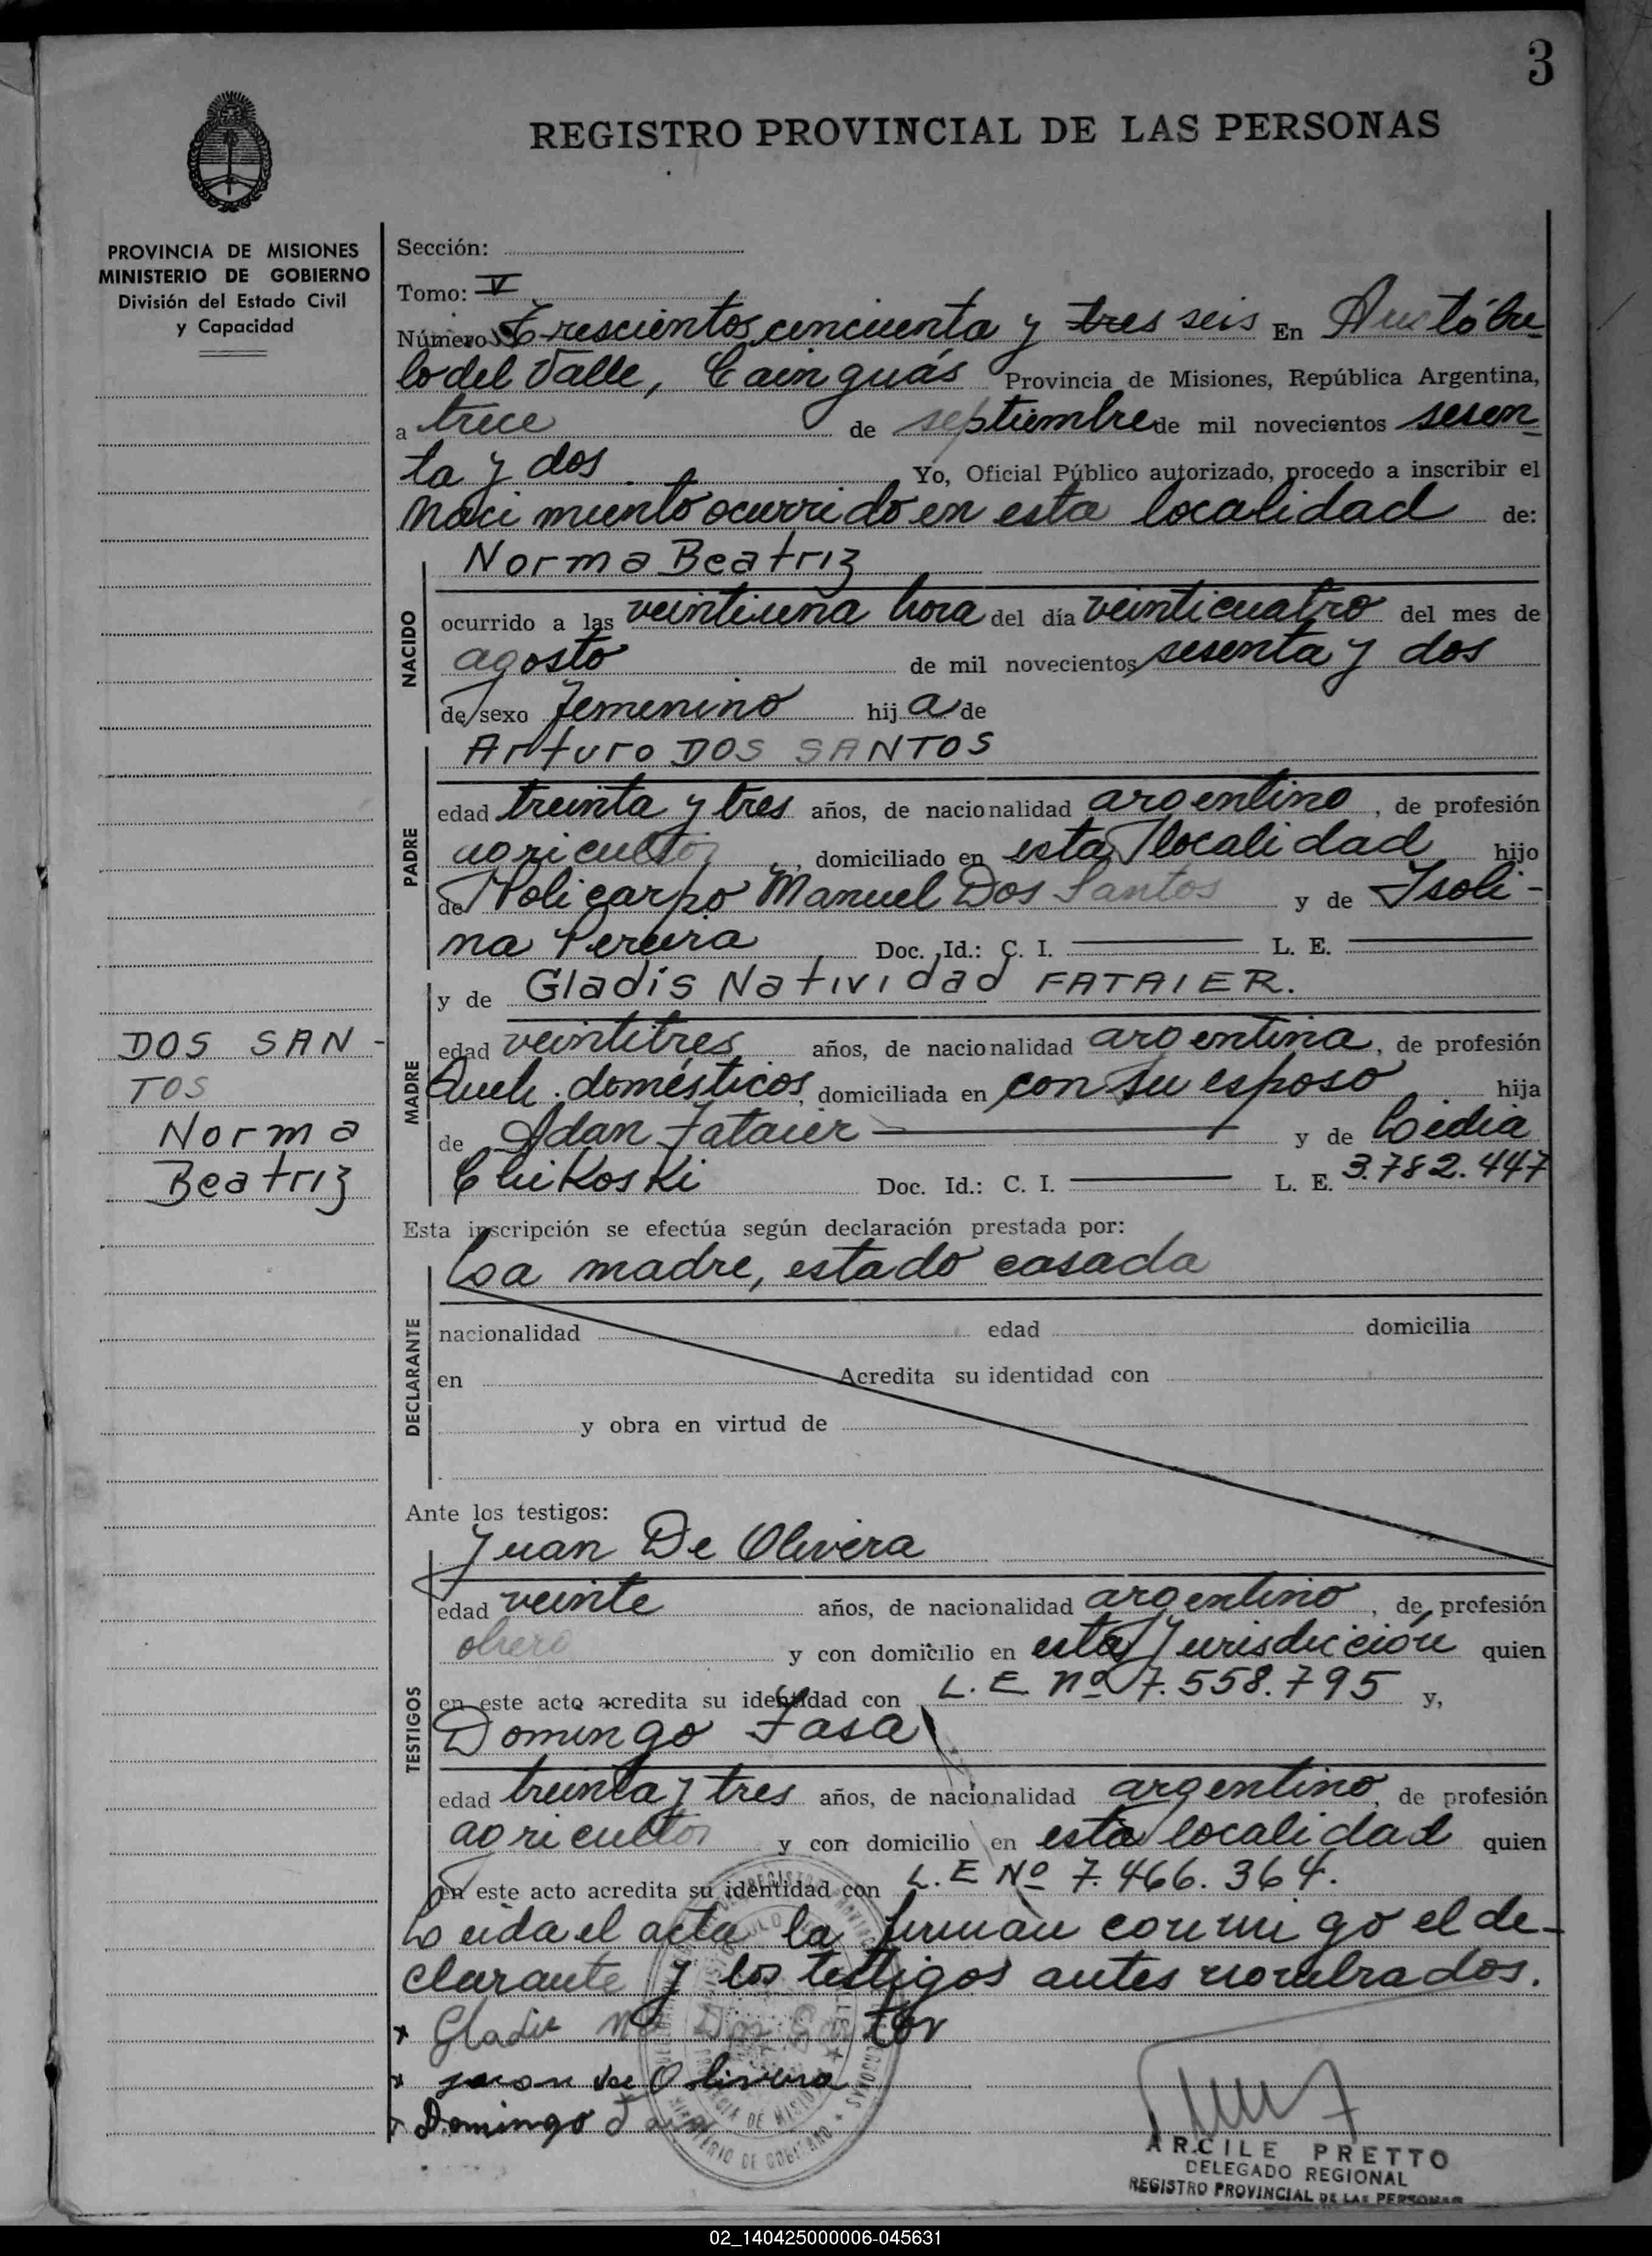 3
REGISTRO PROVINCIAL DE LAS PERSONAS
PROVINCIA DE MISIONES
MINISTERIO DE GOBIERNO
División del Estado Civil
y Capacidad
DOS SAN-
TOS
Norma
Beatriz
Sección:
Tomo: V
Número Trescientos cincuenta y tres seis En Aristóbu
lo del Valle, Cainguás Provincia de Misiones, República Argentina,
a trece de septiembre de mil novecientos sesen
ta y dos Yo, Oficial Público autorizado, procedo a inscribir el
naci miento ocurrido en esta localidad de:
NACIDO
Norma Beatriz
ocurrido a las veintiuna hora del día veinticuatro del mes de
agosto de mil novecientos sesenta y dos
de sexo femenino hij a de
PADRE
Arturo DOS SANTOS
edad treinta y tres años, de nacionalidad argentino, de profesión
agricultor, domiciliado en esta localidad hijo
de Policarpo Manuel Dos Santos y de Isoli-
na Pereira Doc. Id.: C. I. L. E.
MADRE
y de Gladis Natividad FATAIER.
edad veintitres años, de nacionalidad argentina, de profesión
Queh. domésticos, domiciliada en con su esposo hija
de Adan Fataier y de Lidia
Chikoski Doc. Id.: C. I. L. E. 3.782.447
Esta inscripción se efectúa según declaración prestada por:
DECLARANTE
La madre, estado casada
nacionalidad edad domicilia
en Acredita su identidad con
y obra en virtud de
Ante los testigos:
TESTIGOS
Juan De Olivera
edad veinte años, de nacionalidad argentino, de profesión
obrero y con domicilio en esta Jurisdicción quien
en este acto acredita su identidad con L. E. nº 7.558.795 y,
Domingo Fasa
edad treinta y tres años, de nacionalidad argentino, de profesión
agricultor y con domicilio en esta localidad quien
en este acto acredita su identidad con L. E Nº 7.466.364.
Leida el acta la firman conmigo el de-
clarante y los testigos antes nombrados.
x Gladis N Dos Santos
x Juan de Olivera
x Domingo
ARCILE PRETTO
DELEGADO REGIONAL
REGISTRO PROVINCIAL DE LAS PERSONAS
02_140425000006-045631